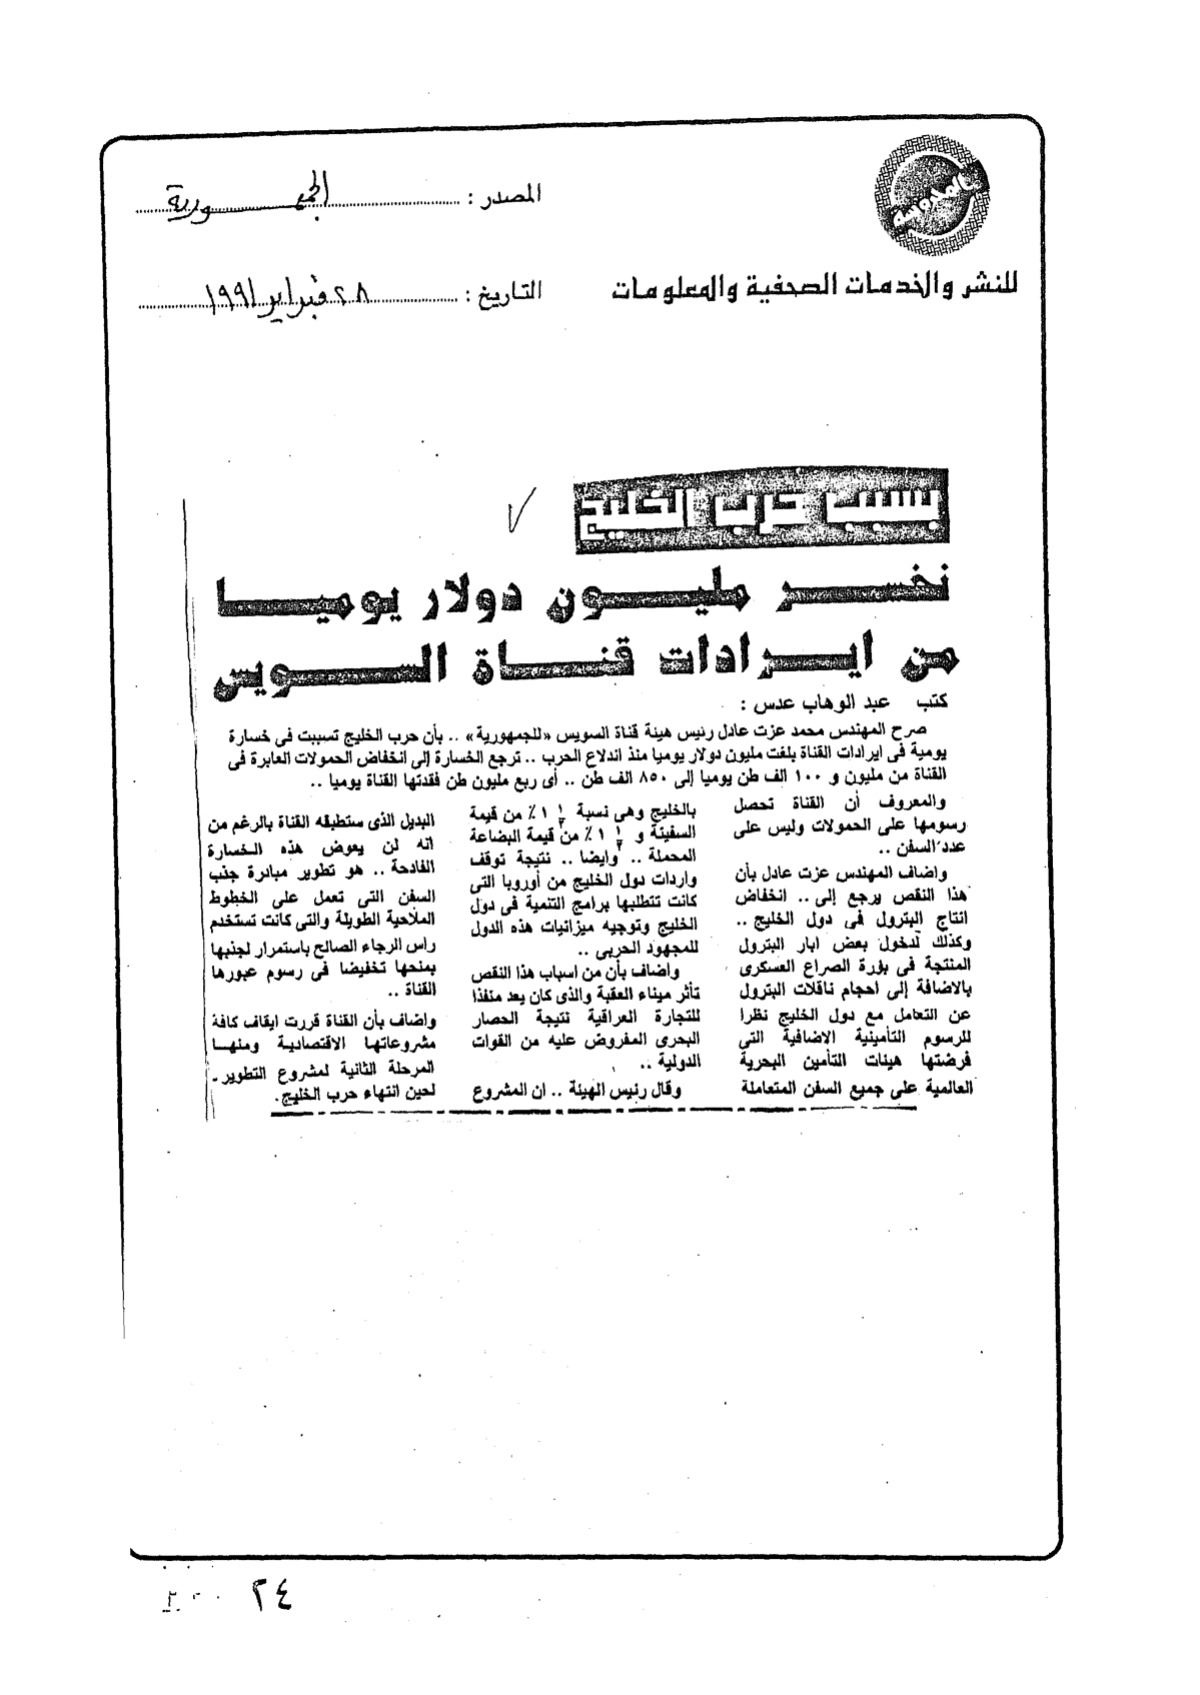 المصدر : الجمهورية
للنشر والخدمات الصحفية والمعلومات
التاريخ : ٢٨ فبراير ١٩٩١
بسبب حرب الخليج
نخسر مليون دولار يوميا
من ايرادات قناة السويس
كتب عبد الوهاب عدس :
صرح المهندس محمد عزت عادل رئيس هيئة قناة السويس «للجمهورية» .. بأن حرب الخليج تسببت فى خسارة
يومية فى ايرادات القناة بلغت مليون دولار يوميا منذ اندلاع الحرب .. ترجع الخسارة إلى انخفاض الحمولات العابرة فى
القناة من مليون و ١٠٠ الف طن يوميا إلى ٨٥٠ الف طن .. أى ربع مليون طن فقدتها القناة يوميا ..
والمعروف أن القناة تحصل
رسومها على الحمولات وليس على
عدد السفن ..
واضاف المهندس عزت عادل بأن
هذا النقص يرجع إلى .. انخفاض
انتاج البترول فى دول الخليج ..
وكذلك لدخول بعض ابار البترول
المنتجة فى بؤرة الصراع العسكرى
بالاضافة إلى احجام ناقلات البترول
عن التعامل مع دول الخليج نظرا
للرسوم التأمينية الاضافية التى
فرضتها هيئات التأمين البحرية
العالمية على جميع السفن المتعاملة
بالخليج وهى نسبة ١ ٪ من قيمة
السفينة و ١ ٪ من قيمة البضاعة
المحملة .. وأيضا .. نتيجة توقف
واردات دول الخليج من أوروبا التى
كانت تتطلبها برامج التنمية فى دول
الخليج وتوجيه ميزانيات هذه الدول
للمجهود الحربى ..
واضاف بأن من اسباب هذا النقص
تأثر ميناء العقبة والذى كان يعد منفذا
للتجارة العراقية نتيجة الحصار
البحرى المفروض عليه من القوات
الدولية ..
وقال رئيس الهيئة .. ان المشروع
البديل الذى ستطبقه القناة بالرغم من
انه لن يعوض هذه الخسارة
الفادحة .. هو تطوير مبادرة جنب
السفن التى تعمل على الخطوط
الملاحية الطويلة والتى كانت تستخدم
راس الرجاء الصالح باستمرار لجنبها
بمنحها تخفيضا فى رسوم عبورها
القناة ..
واضاف بأن القناة قررت ايقاف كافة
مشروعاتها الاقتصادية ومنها
المرحلة الثانية لمشروع التطوير .
لحين انتهاء حرب الخليج .
٢٤